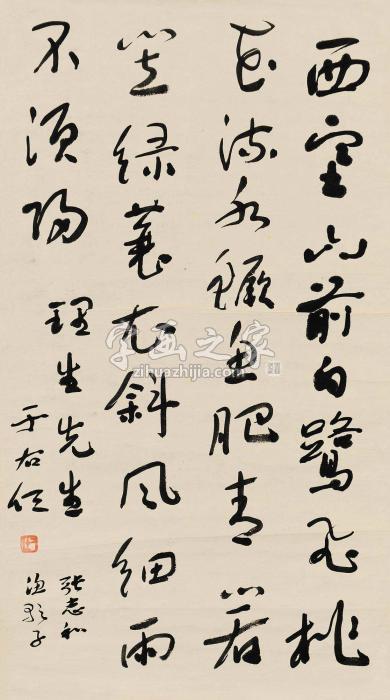 西塞山前白鷺飛桃
花流水鱖魚肥青箬
笠綠蓑衣斜風細雨
不須歸
理生先生
于右任
張志和
漁歌子
字画之家
zihuazhijia.com